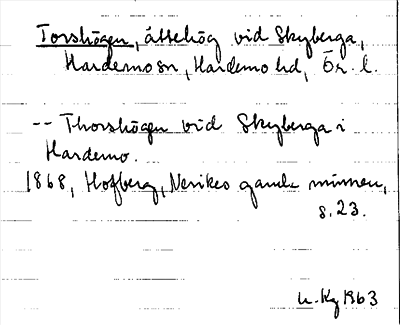 Torshögen, ättehög vid Skyberga,
Hardemo sn, Hardemo hd, Ör. l.
-- Thorshögen vid Skyberga i
Hardemo.
1868, Hofberg, Nerikes gamla minnen,
s. 23.
1963